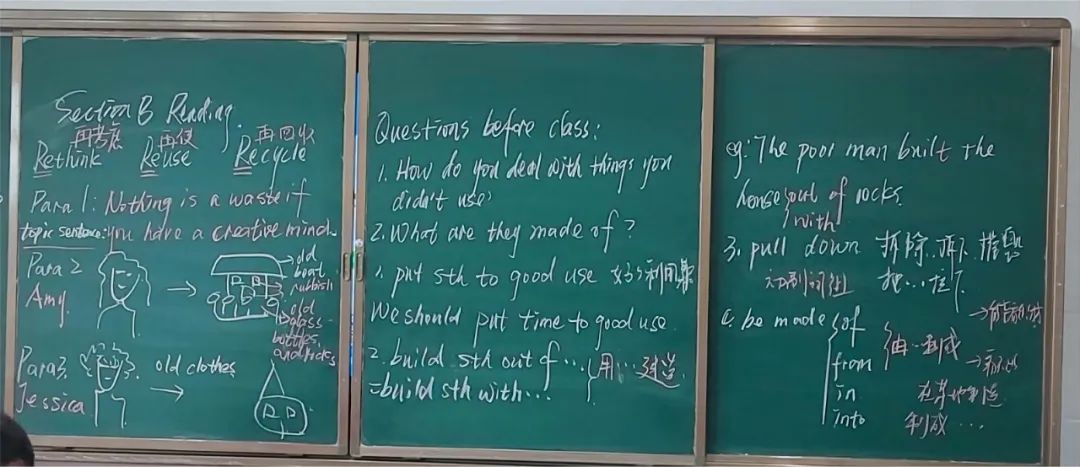 Section B Reading.
再考虑 再使 再回收
Rethink Reuse Recycle
Para 1: Nothing is a waste if
topic sentence: you have a creative mind.
Para 2
Amy
old
boat
rubbish
old
glass
bottles
and ricks
Para 3.
Jessica
old clothes
Questions before class:
1. How do you deal with things you
didn't use?
2. What are they made of?
1. put sth to good use 好好利用某
We should put time to good use.
2. build sth out of... 用...建造
=build sth with...
eg: The poor man built the
house out of rocks.
with
3. pull down 拆除,拆下,摧毁
动副词组 把...拉下
4. be made of
from 由...制成
in 在某地制造
into 制成...